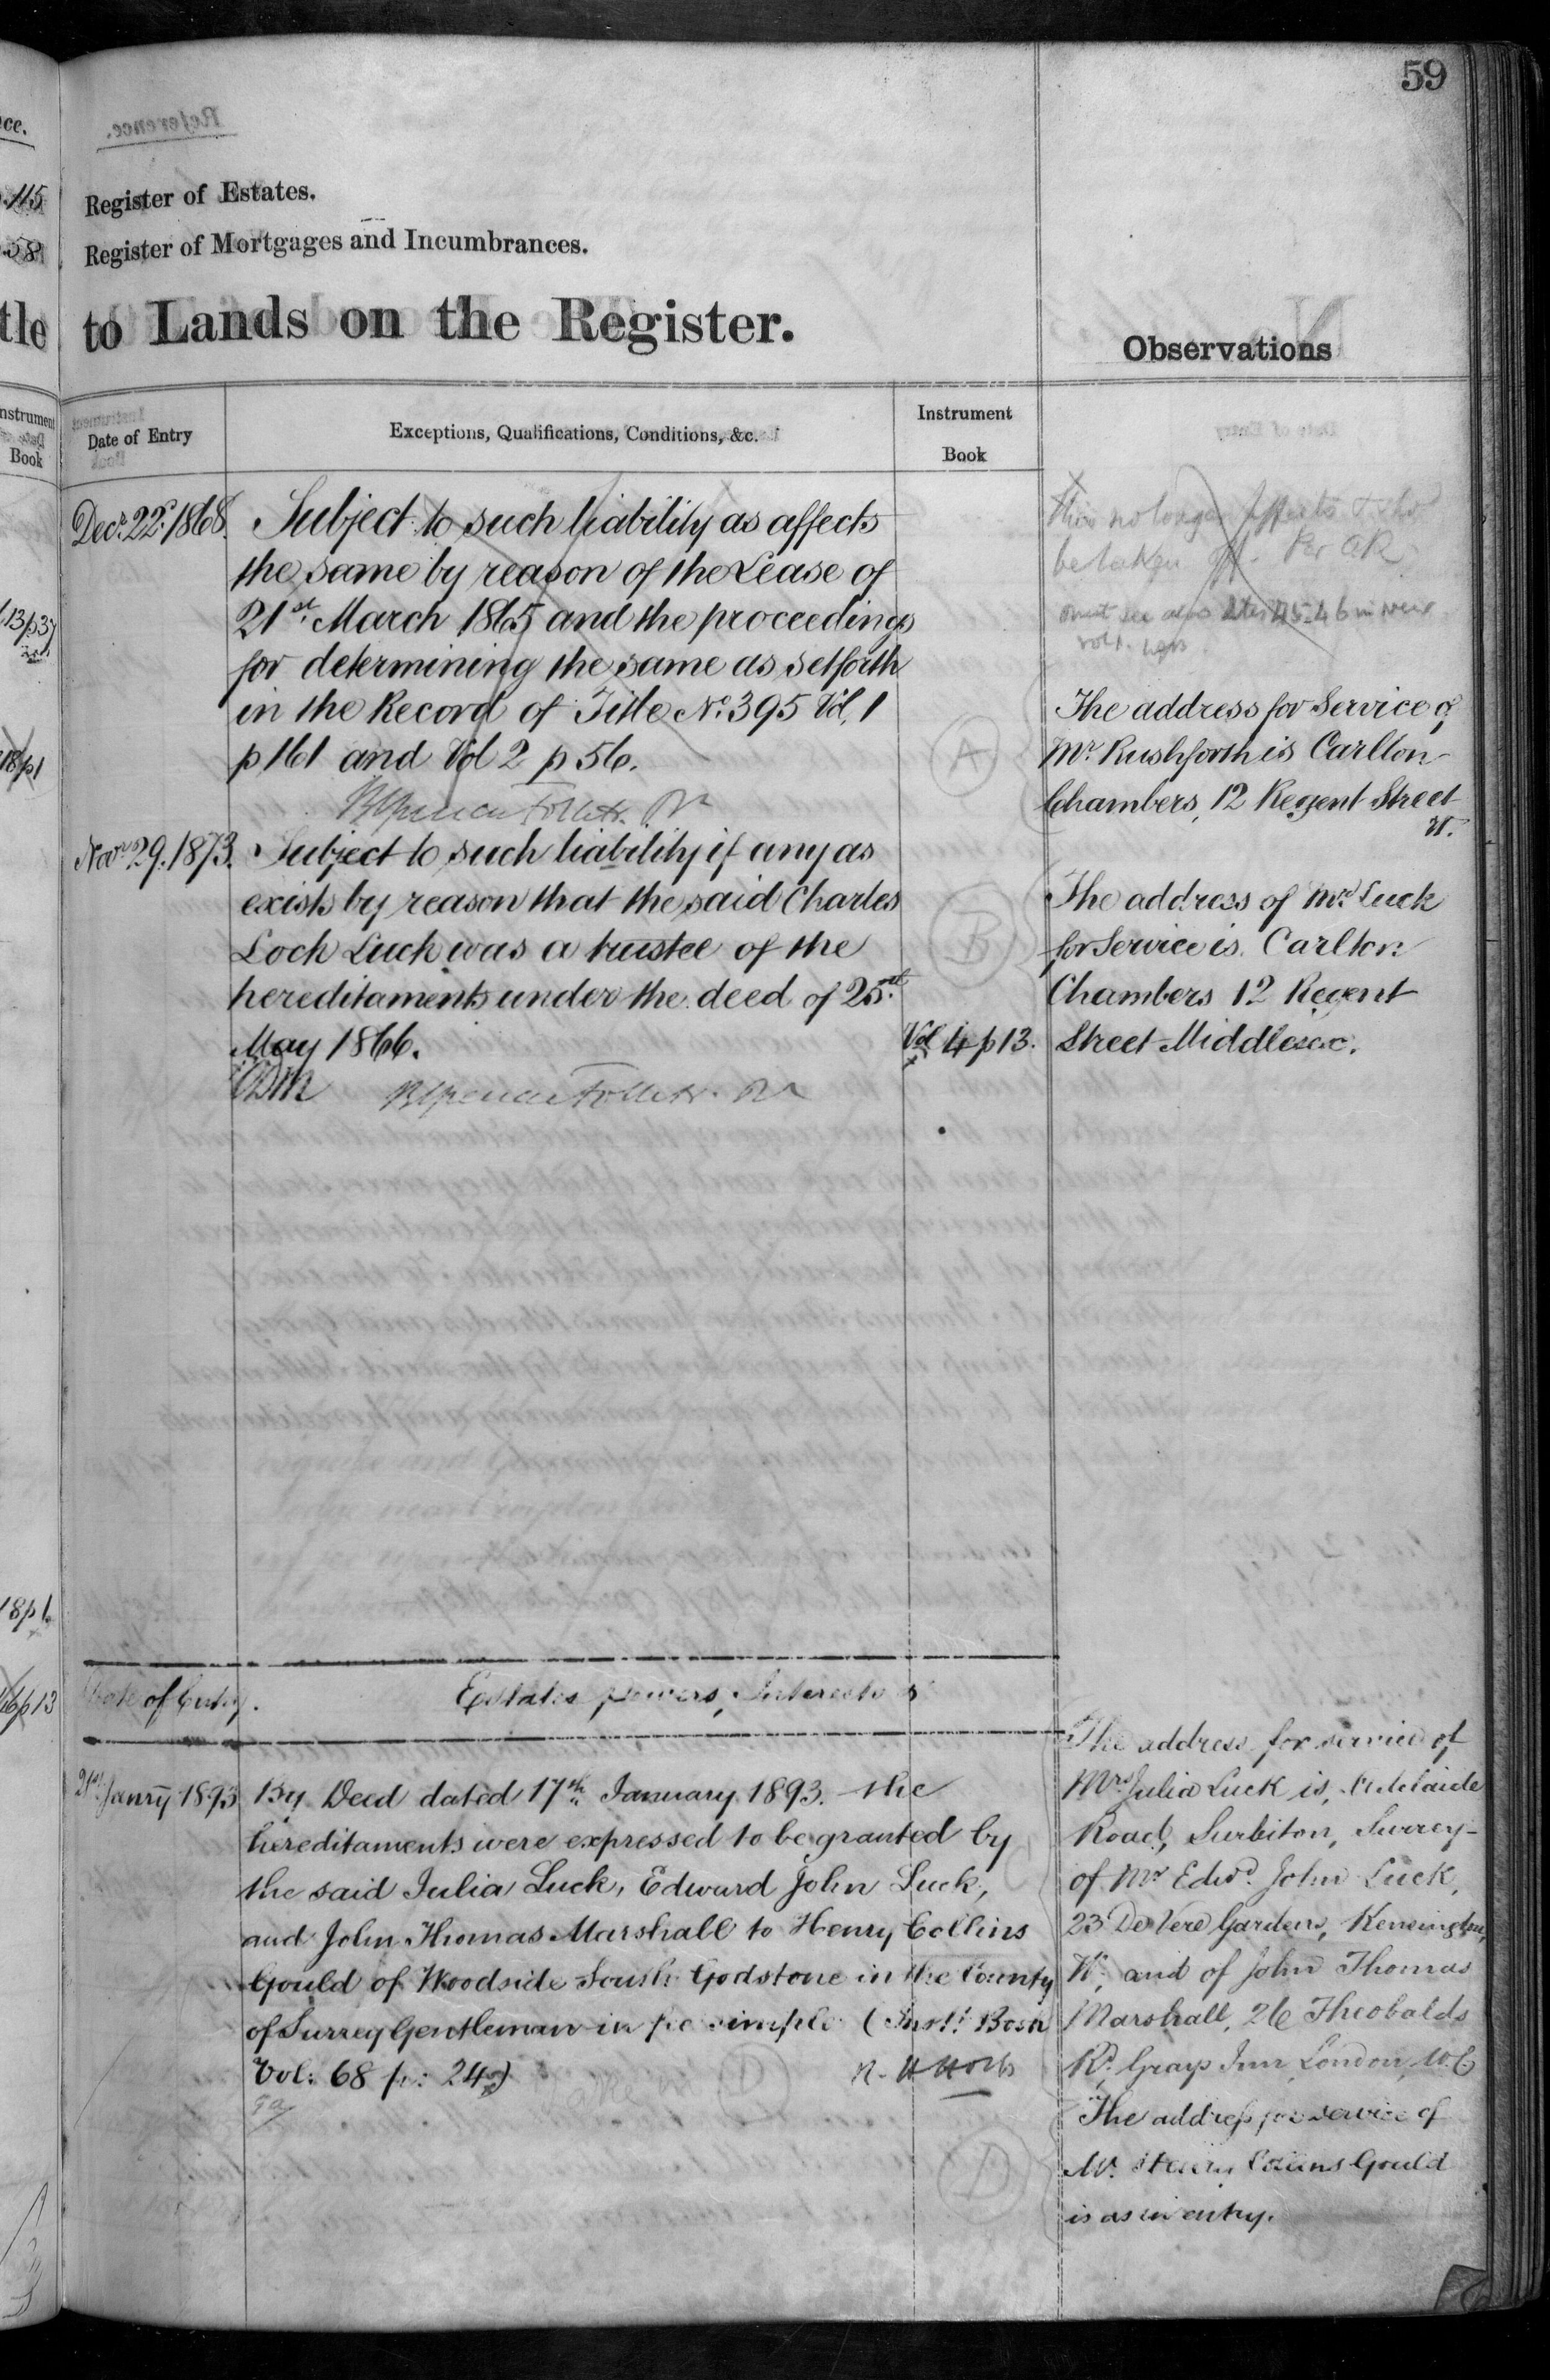 59
Register of Estates.
Register of Mortgages and Incumbrances.
tle to Lands on the Register.
Observations
Date of Entry
Exceptions, Qualifications, Conditions, &c.
Instrument
Book
Decr. 22d. 1868.
Subject to such liability as affects
the same by reason of the Lease of
21st. March 1865 and the proceedings
for determining the same as set forth
in the Record of Title No. 395 Vol. 1
p 161 and Vol 2 p 56.
This no longer affects
be taken off. Per
A
The address for Service of
Mr. Rushforth is Carlton
Chambers, 12 Regent Street
W.
Novr. 29. 1873.
Subject to such liability if any as
exists by reason that the said Charles
Loch Luck was a trustee of the
hereditaments under the deed of 25th.
May 1866.
Vol 4 p 13.
B
The address of Mrs. Luck
for Service is Carlton
Chambers 12 Regent
Street Middlesex.
Date of Entry.
Estates, powers, Interests &
21st. Janry 1893
By Deed dated 17th January 1893. the
hereditaments were expressed to be granted by
the said Julia Luck, Edward John Luck,
and John Thomas Marshall to Henry Collins
Gould of Woodside South Godstone in the County
of Surrey Gentleman in fee simple (Inst: Book
Vol: 68 p: 24)
D
The address for service of
Mrs Julia Luck is, Adelaide
Road, Surbiton, Surrey-
of Mr Edwd. John Luck,
23 De Vere Gardens, Kensington,
W, and of John Thomas
Marshall, 26 Theobalds
Rd, Grays Inn London W.C
D
The address for service of
Mr. Henry Collins Gould
is as in entry.